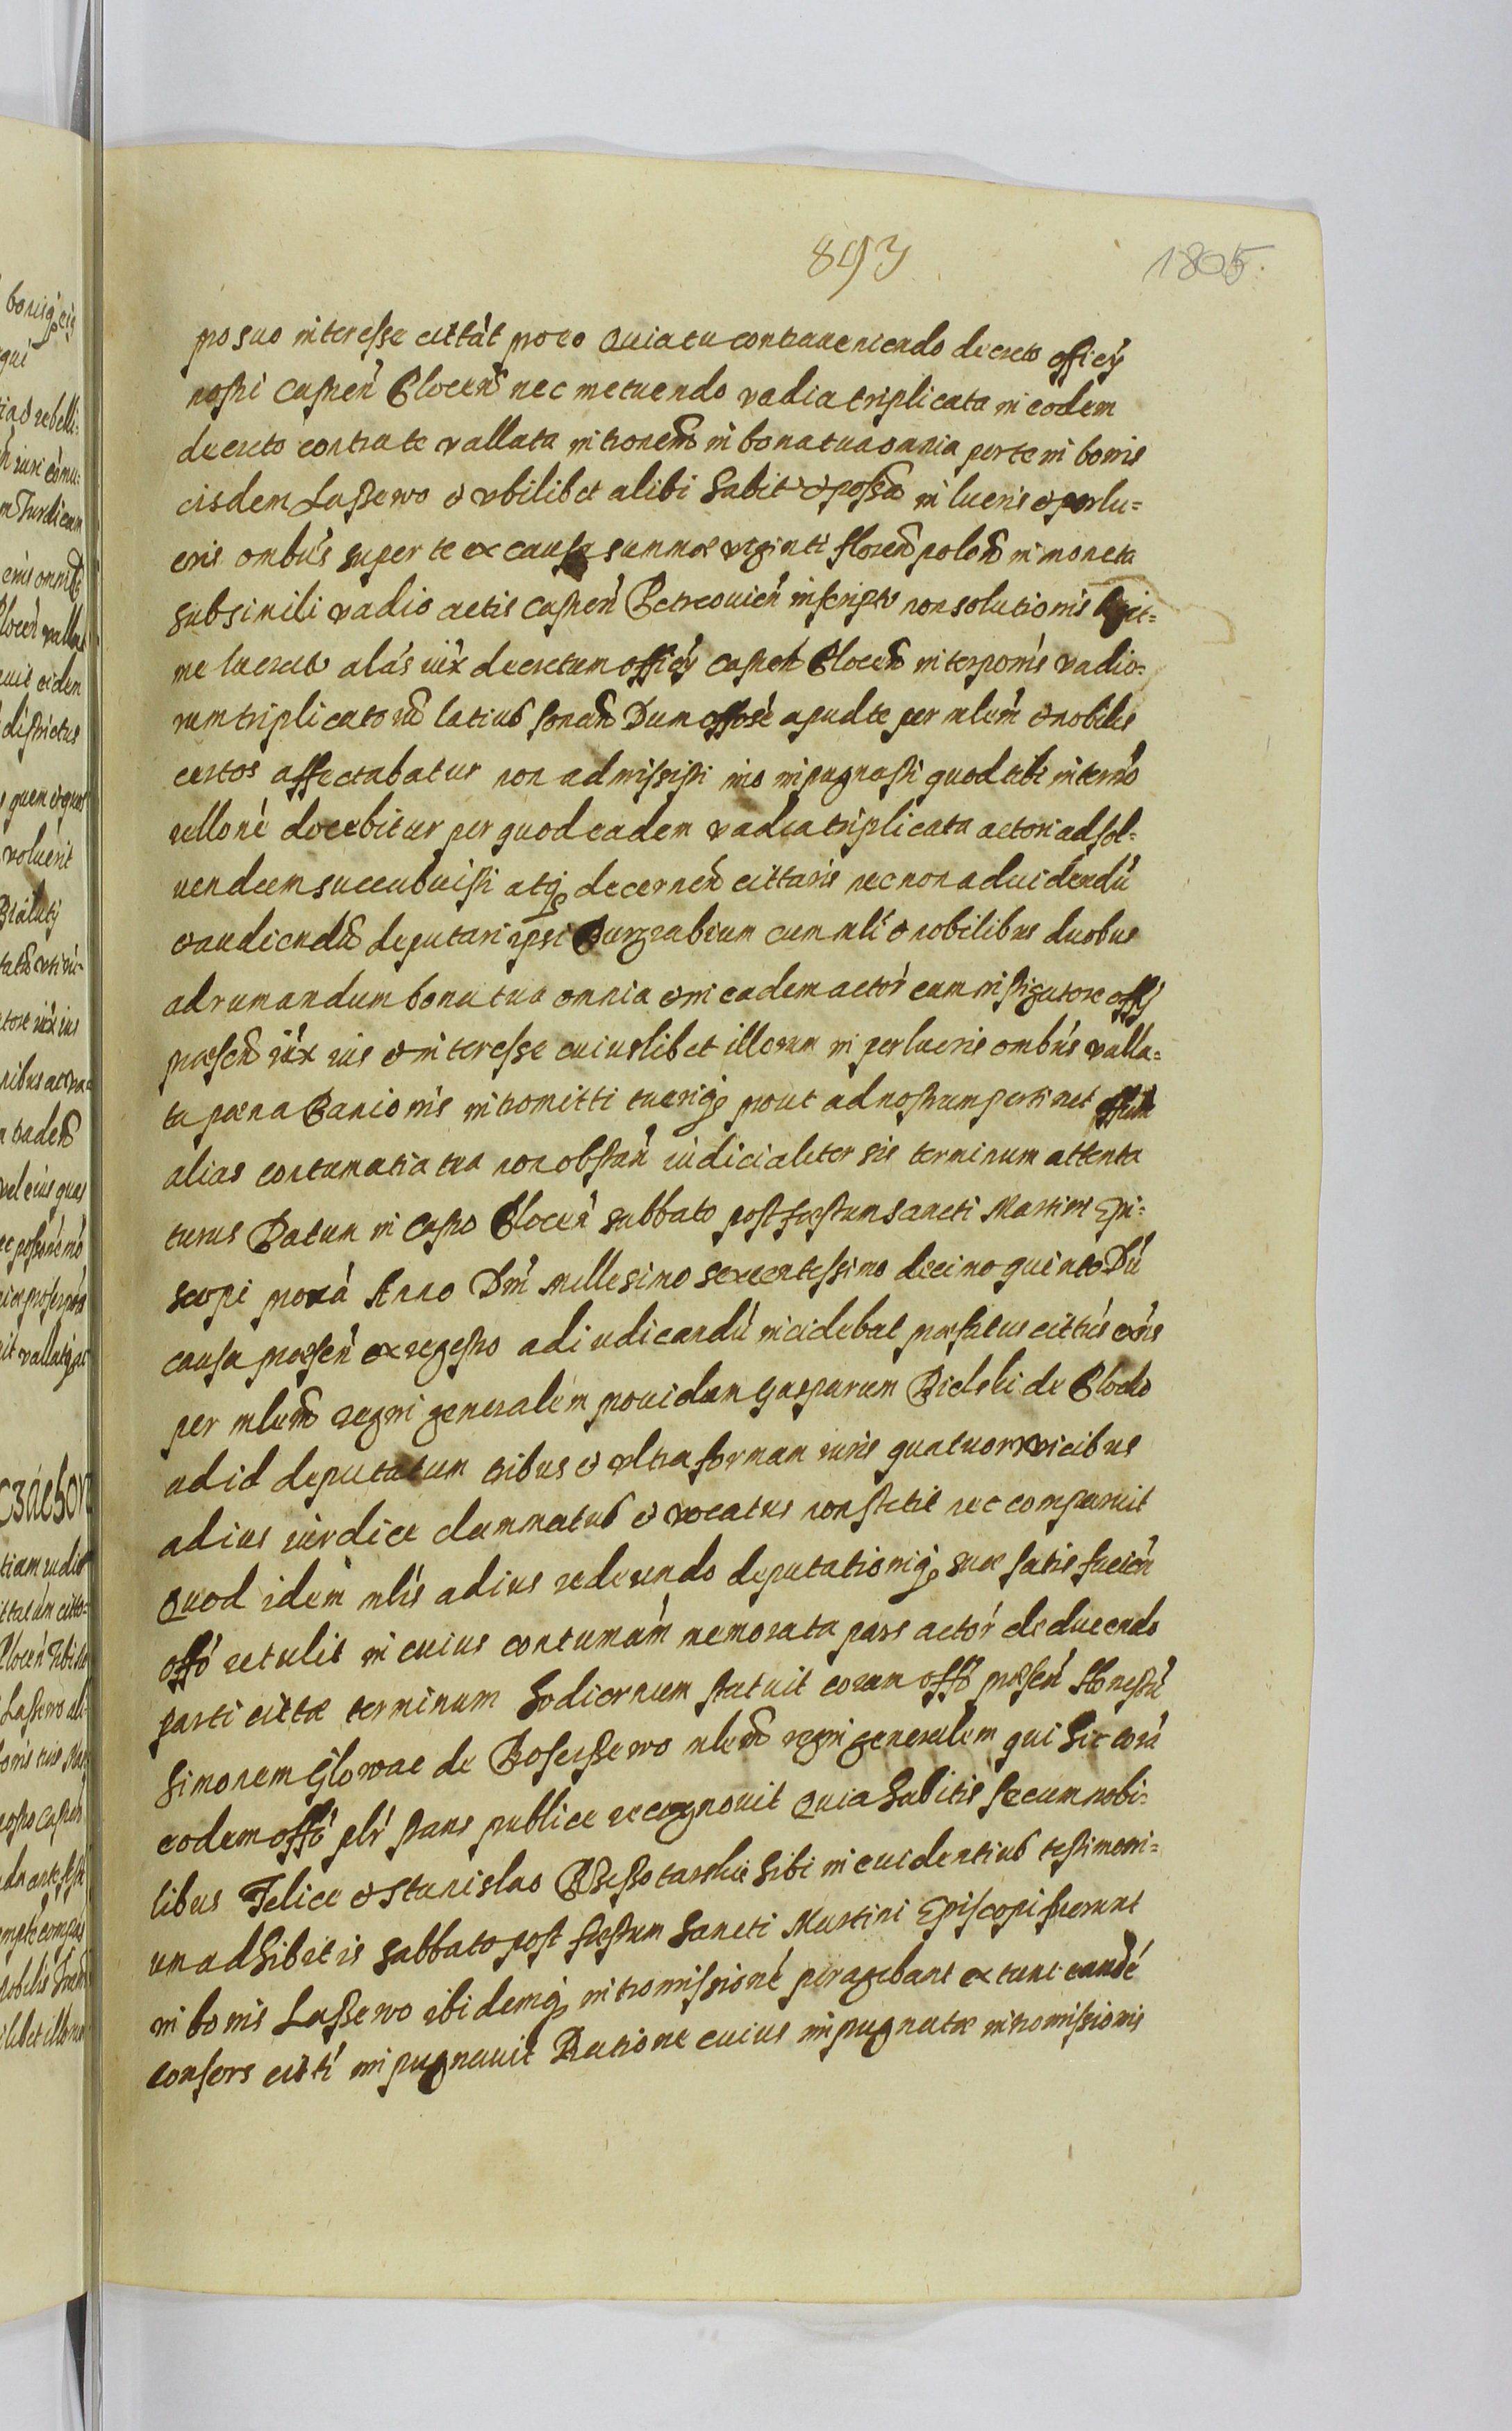 893 1805.
pro suo interesse cittat pro eo Quia tu contraueniendo decreto officÿ
nostri Castren Plocens nec metuendo vadia triplicata in eodem
decreto contra te vallata intronem in bona tua omnia per te in bonis
eisdem Lassewo et vbilibet alibi habit et possa in lucris et perlu=
cris ombus super te ex causa summae viginti floren polon in moneta
sub simili vadio actis Castren Petreouien inscripto non solutionis legit=
me lucrat alas iux decretum officÿ castren Plocen interponis vadio=
rum triplicatorū latius sonan Dum offose apud te per mlum et nobiles
certos affectabatur non admisisti imo impugnasti quod tibi in termo
relloné docebitur per quod eadem vadia triplicata actori ad sol=
uendum succubuisti atq decernen cittaris nec non ad uidendū
et audiendū deputari ipsi Burgrabium cum mli et nobilibus duobus
ad rumandum bona tua omnia et in eadem actor cum instigatore offÿ
praesen iux ius et interesse cuiuslibet illorum in perlucris ombus valla=
ta poena Banionis intromitti tueriq prout ad nostrum pertinet offum
alias contumatia tua non obstan iudicialiter sis terminum attenta
turus Datum in Castro Plocen sabbato post faestum sancti Martini Epi=
scopi proxa Anno Dni Millesimo Sexcentessimo decimo quinto Dū
causa praesen ex regestro adiudicandū incidebat praefatus cittus exns
per mlem regni generalem prouidum Gasparum Bielski de Plocko
ad id deputatum tribus et vltra formam iuris quatuor vicibus
ad ius iurdice clammatus et vocatus non stetit nec comparuit
Quod idem mlis ad ius redeundo deputationiq suae satis facien
offo retulit in cuius contumam memorata pars actor deducendo
parti cittae terminum hodiernum statuit coram offo praesen Honestū
Simonem Glowac de Boserssewo mlem regni generalem qui hic corā
eodem offo plr stans publice recognouit Quia habitis secum nobi=
libus Felice et Stanislao Rzessotarskie sibi in euidentius testimoni=
um adhibitis sabbato post faestum sancti Martini Episcopi fuerunt
in bonis Lassewo ibidemq intromissioné peragebant ex tunc eandé
consors citti impugnauit Ratione cuius impugnatae intromissionis